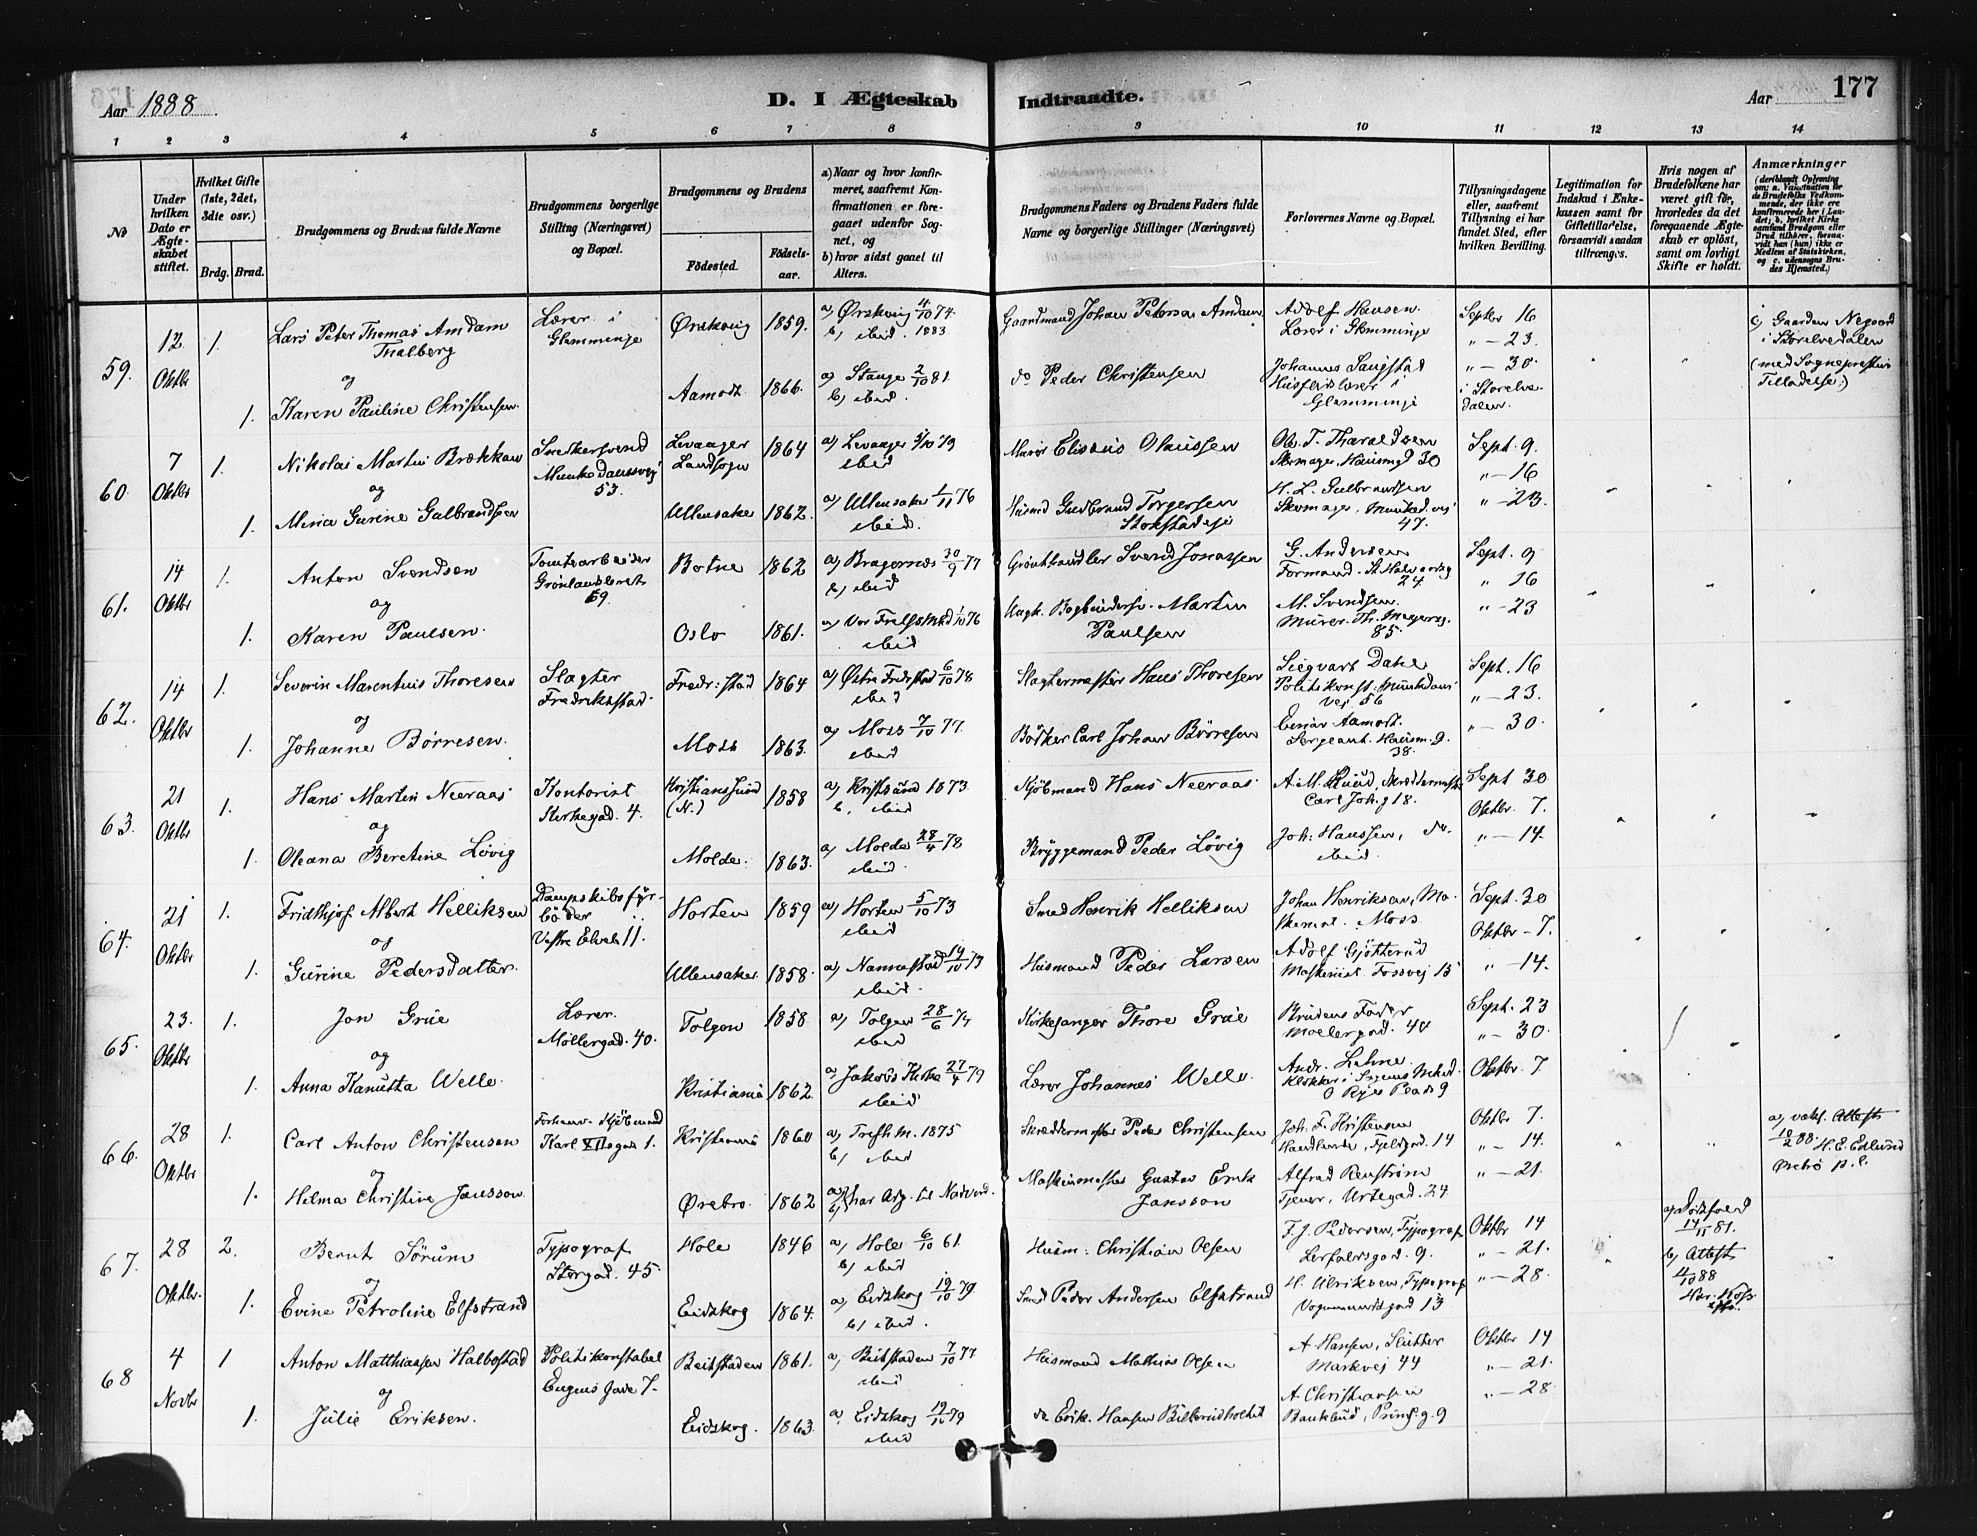 Aar 1888
D. I Ægteskab Indtraadte.
Aar
177
1 2 3 4 5 6 7 8 9 10 11 12 13 14
No
Under hvilken Dato er Ægteskabet stiftet.
Hvilket Gifte (1ste, 2det, 3die osv.)
Brdg. Brud.
Brudgommens og Brudens fulde Navne
Brudgommens borgerlige Stilling (Næringsvei) og Bopæl.
Brudgommens og Brudens
Fødested.
Fødselsaar.
a) Naar og hvor konfirmeret, saafremt Konfirmationen er foregaaet udenfor Sognet, og
b) hvor sidst gaaet til Alters.
Brudgommens Faders og Brudens Faders fulde Navne og borgerlige Stillinger (Næringsvei)
Forlovernes Navne og Bopæl.
Tillysningsdagene eller, saafremt Tillysning ei har fundet Sted, efter hvilken Bevilling.
Legitimation for Indskud i Enkekassen samt for Giftetilladelse, forsaavidt saadan tiltrænges.
Hvis nogen af Brudefolkene har været gift før, hvorledes da det foregaaende Ægteskab er opløst, samt om lovligt Skifte er holdt.
Anmærkninger
59. 12 Oktbr 1. Lars Peter Thomas Amdam Thalberg
Lærer i Glemminge
Ørskoug 1859. a) Ørskoug 4/10 74. b) ibid. 1883
Gaardmand Johan Peterson Amdam
Adolf Hansen Lærer i Glemminge
Septbr 16 " - 23. " - 30. i Storelvedalen
c) Gaarden Negaard i Storelvedalen (med Sognepræstens Tilladelse.)
og
1. Karen Pauline Christensen
Aamodt 1866. a) Stange 2/10 81 b) ibid.
do Peder Christensen
Johannes Saugstad Husflidslærer i Glemminge
60. 7 Oktbr 1. Nikolai Martin Brækkan
Snedkersvend Munkedamsvej 53.
Levanger Landsogn 1864 a) Levanger 5/10 79 ibid
Murer Elisæus Olaussen
Ole T. Tharaldsen Skomager, Hausmsgd 30
Sept. 9. " - 16 " - 23.
og
1. Mina Gurine Gulbrandsen
Ullensaker 1862. a) Ullensaker 1/11 76 ibid.
Husmd Gudbrand Torgersen Stokstadeje
H. L. Gulbrandsen Skomager, Munked.vej 47.
61. 14 Oktbr 1. Anton Svendsen
Tomtearbeider Grönlandsleret 59.
Botne 1862 a) Bragernes 30/9 77 b) ibid
Grönthandler Svend Jonassen
G. Andersen Formand. St. Halvardsg 24.
Sept. 9 " 16 " - 23
og
1. Karen Paulsen.
Oslo 1861. a) Vor Frelsers Mhd 1/10 76 ibid
Ungk. Bogbindersv. Martin Paulsen
M. Svendsen. Murer. Th. Meyersg. 85.
62. 14 Oktbr 1. Severin Marenthius Thoresen
Slagter Fredrikstad.
Fredr:stad 1864 a) Østre Fredrstad 6/10 78 ibid
Slagtermester Hans Thoresen
Siegvart Dahl Politikonst. Munkdamsvej 56
Sept. 16 " - 23. " - 30.
og
1. Johanne Börresen.
Moss 1863. a) Moss 7/10 77. ibid
Bödker Carl Johan Börresen
Einar Aamodt. Sergeant. Hausm.g. 38.
63. 21 Oktbr 1. Hans Martin Neeraas
Kontorist Kirkegad. 4.
Kristianssund (N.) 1858 a) Kristsund 1873. b. ibid
Kjöbmand Hans Neeraas
A. M. Ruud, Skræddermester Carl Joh.g 18.
Sept 30 Oktbr. 7. " - 14.
og
1. Oleana Beretine Lövig
Molde. 1863. a) Molde 28/4 78 ibid.
Bryggemand Peder Lövig
Joh: Hanssen, do. ibid.
64. 21 Oktbr 1. Fridthjof Albert Helliksen
Dampskibsfyrböder Vestre Elveb. 11.
Horten 1859 a) Horten 5/10 73 ibid
Smed Henrik Helliksen
Johan Henriksen, Maskinist. Moss
Sept. 30 Oktbr - 7. " - 14.
og
1. Gurine Pedersdatter.
Ullensaker. 1858. a) Nannestad 14/10 73 ibid.
Husmand Peder Larsen
Adolf Gjötterud Maskinist Fossvej 15
65. 23. Oktbr 1. Jon Grue
Lærer. Möllergad. 40.
Tolgen 1858 a) Tolgen 28/6 74 ibid
Kirkesanger Thore Grue
Brudens Fader Möllergad. 44
Sept. 23 " - 30. Oktbr 7
og
1. Anna Kanutta Welle.
Kristiania 1862. a) Jakobs Kirke 27/4 79 ibid
Lærer Johannes Welle.
Andr. Lehne. Klokker i Sagenes Mhed. O Ryes Plads 9
66. 28 Oktbr 1. Carl Anton Christensen
Forhenv. Kjöbmand Karl XII's gade 1.
Kristiania 1860 a) Trefh M. 1875 b) ibid
Skræddermester Peder Christensen
Joh. F. Kristensen Handlende, Fjeldgad. 14
Oktbr 7. " - 14. " - 21.
og
1. Hilma Christine Jansson.
Örebro 1862 a) b) har Adg. til Nadverd.
Maskinmester Gustav Erik Jansson
Alfred Renström Tjener, Urtegad. 24
67. 28 Oktbr. 2. Bernt Sörum
Typograf Storgad. 45
Hole 1846 a) Hole 6/10 61. b) ibid
Husm: Christian Olsen
F. J. Pedersen, Typograf Lerfaldsgad. 9.
Oktbr 14 " - 21. " - 28.
a) Dödsfald 14/11 81. b) Attest 4/10 88
og
1. Evine Petroline Elfstrand
Eidskog 1864. a) Eidskog 19/10 79. b) ibid.
Smed Peder Andersen Elfstrand
H. Ulriksen, Typograf Vognmandsgad 13
68 4 Novbr 1 Anton Matthiassen Halbostad
Politikonstabel Eugens Gade 7.
Beitstaden 1861. a) Beitstaden 7/10 77 ibid
Husmand Mathias Olsen
A. Hansen, Slutter Markvej 44
Oktbr 14 " - 21. " - 28.
og
1. Julie Eriksen.
Eidskog. 1863. a. Eidskog 19/10 79 ibid
do Erik Hansen
A. Christiansen Bankbud, Prinds.g. 9